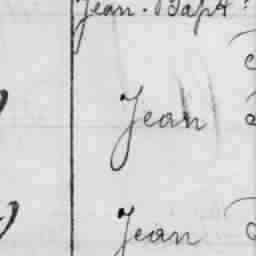 Jean. Bapt.
Jean
Jean